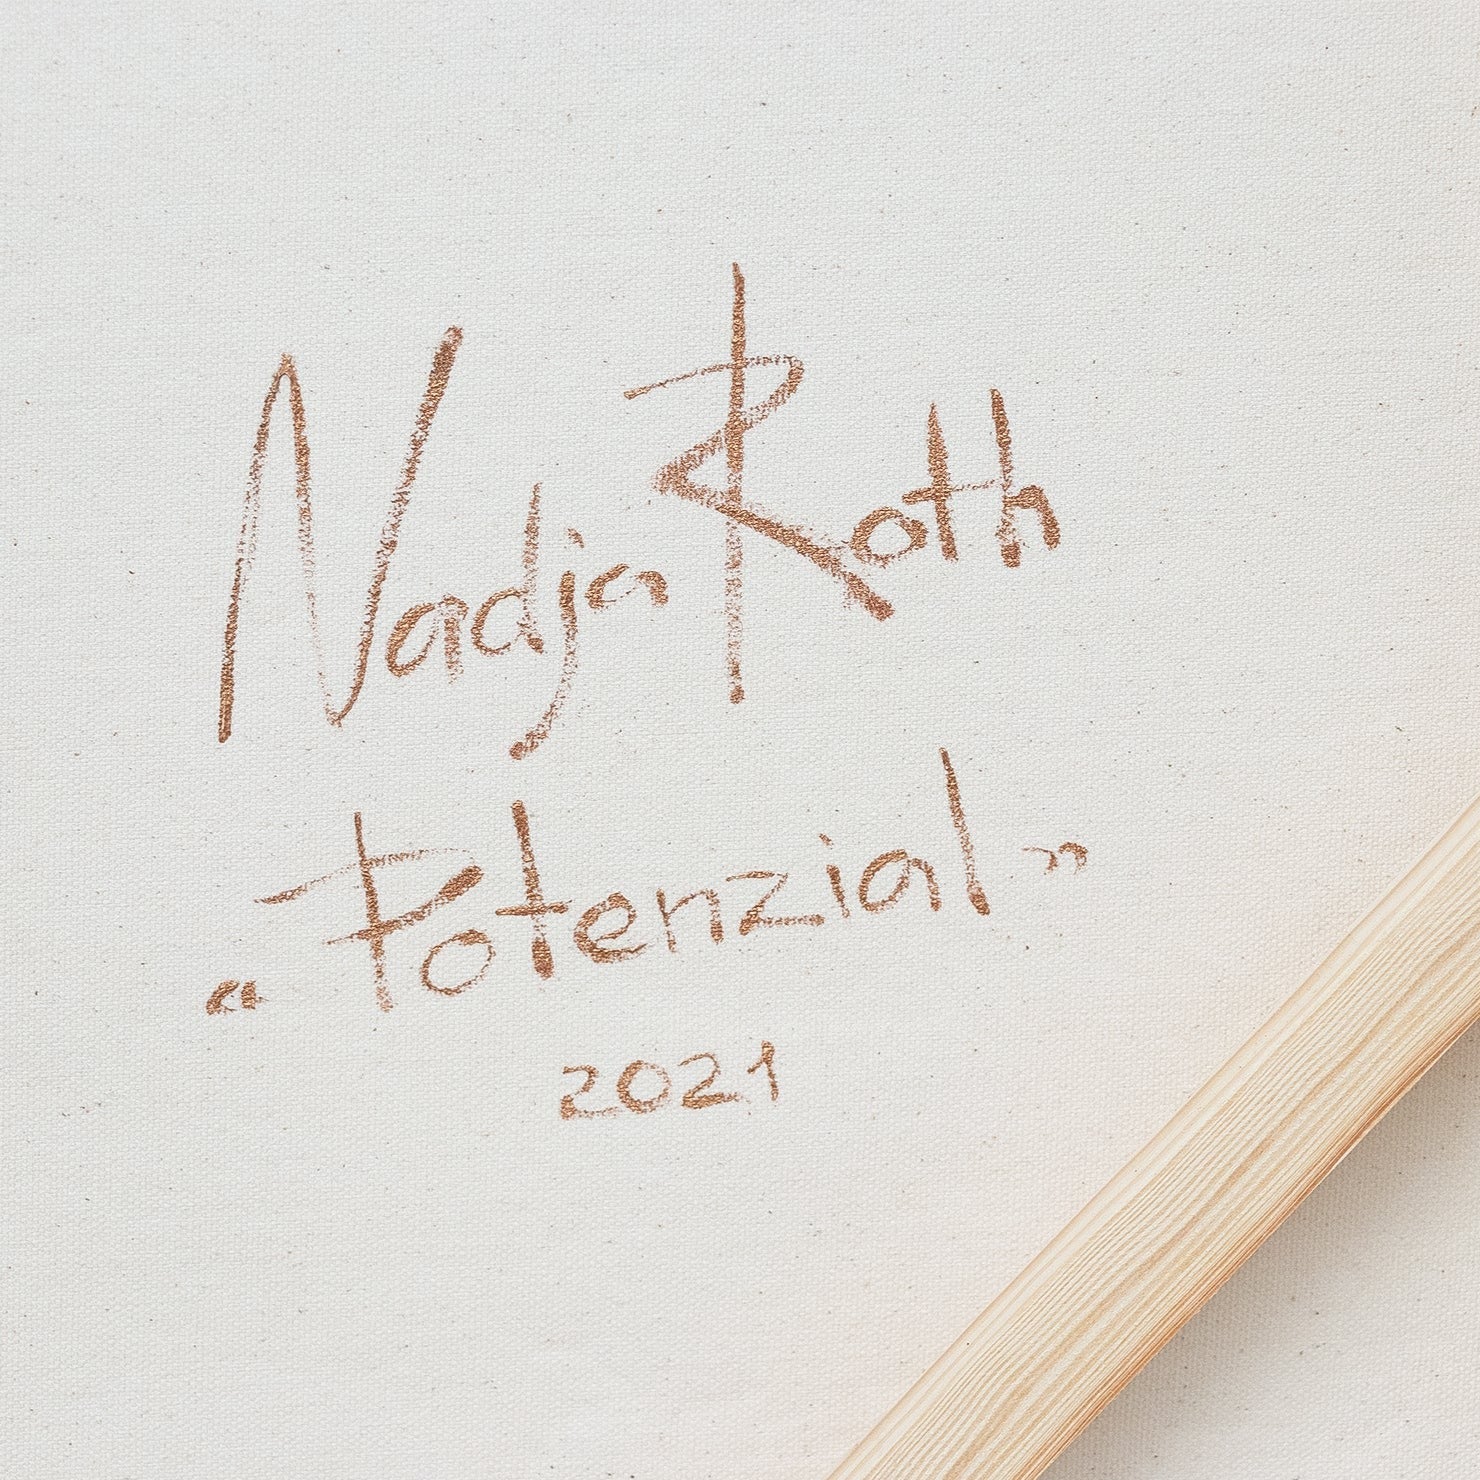 Nadja Roth
„Potenzial”
2021